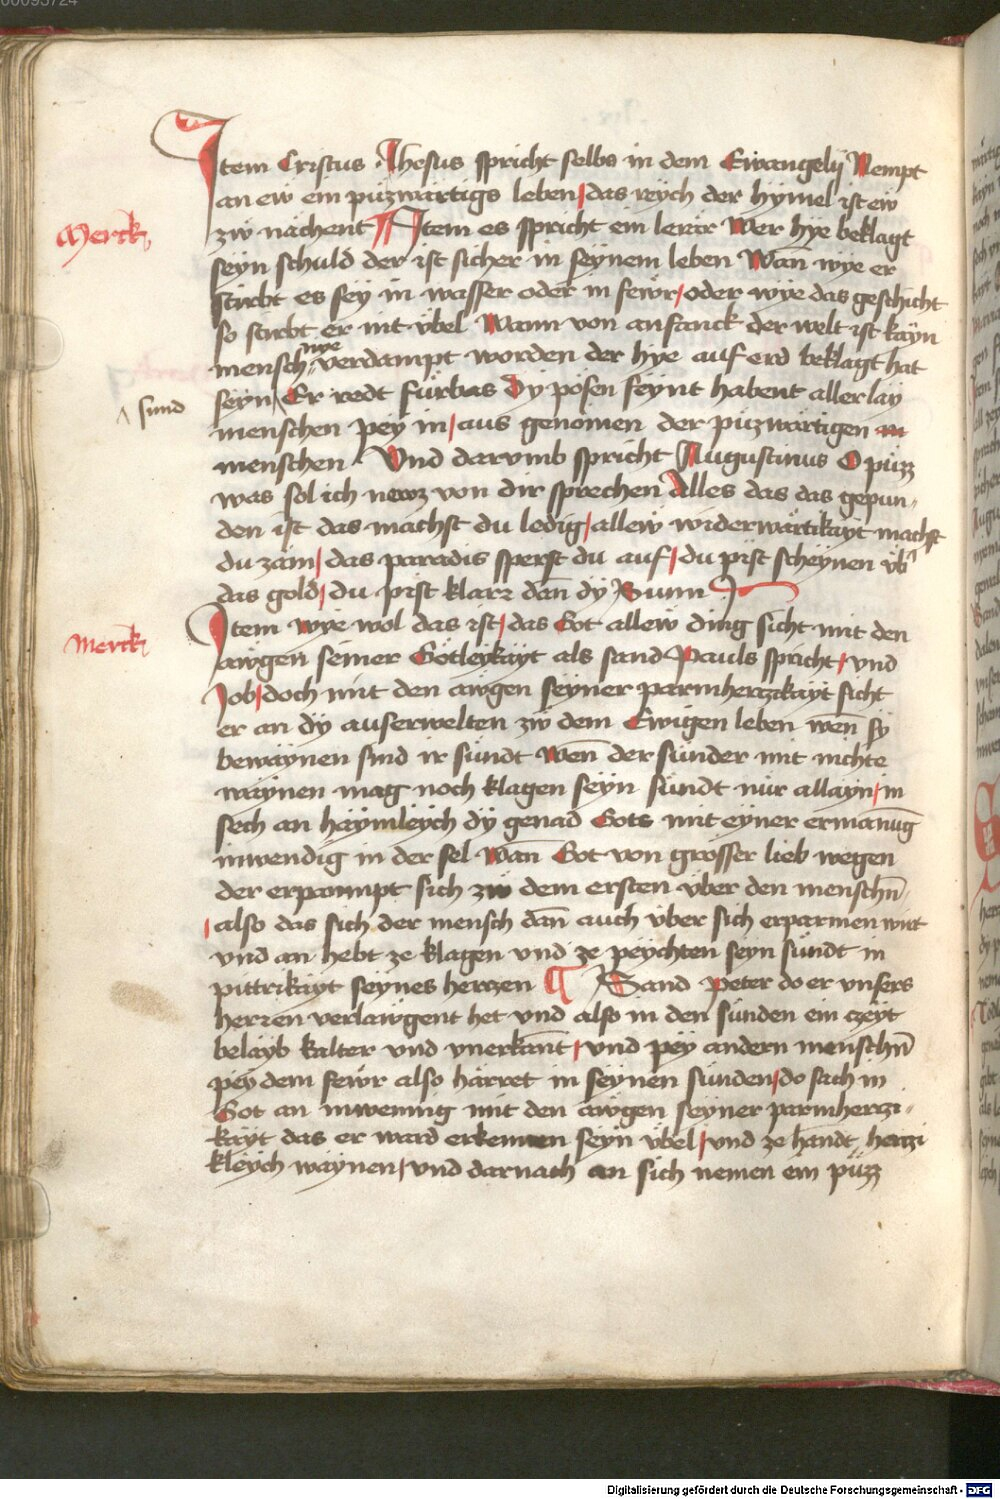 Item Cristus Jhesus spricht selbs in dem Ewangelij Nempt
an ew ein püzwärtigs leben / das reych der hymel ist ew
zw nächent ¶ Item es spricht ein lerär Wer hye beklagt
Merck
seyn schuld der ist sicher in seynem leben Wan wye er
stirbt es sey in wasser oder in fewr / oder wye das geschicht
so stirbt er nit übel Wann von anfanck der welt ist kayn
mensch nye verdampt worden der hye auf erd beklagt hat
seyn Er redt fürbas Dy pösen feynt habent allerlay
sund
menschen pey in / aus genomen der püzwärtigen
menschen . Und darumb spricht Augustinus O püzz
was sol ich newz von dir sprechen Alles das das gepun-
den ist das machst du ledig / allew widerwärtikayt machst
du zäm / das paradis sperst du auf / du pist scheynen üb'
das gold / du pist klarz dan dy Sunn
Item wye wol das ist / das Got allew ding sicht mit den
Merck
awgen seiner Götleykayt als sand Pauls spricht / und
Job / doch mit den awgen seyner parmhertzikayt sicht
er an dy auserwelten zw dem Ewigen leben wen sy
bewaynen sind ir sündt Wen der sünder mit nichte
waynen mag noch klagen seyn sündt nur allayn / in
sech an haymleych dy genad Gots mit eyner ermanug
inwendig in der sel Wan Got von grosser lieb wegen
der erparmpt sich zw dem ersten über den menschn
/ also das sich der mensch dan auch über sich erparmen wirt
und an hebt ze klagen und ze peychten seyn sündt in
pittrikayt seynes hertzen ¶ Sand Peter do er unsers
herren verlawgent het und also in den sünden ein czeyt
belayb kalter und unerkant / und pey andern menschn
pey dem fewr also harret in seynen sünden / do sach in
Got an inwennig mit den awgen seyner parmhertzi-
kayt das er ward erkennen seyn übel / und ze handt hertzi
kleych waynen / und darnach an sich nemen ein püzz
Digitalisierung gefördert durch die Deutsche Forschungsgemeinschaft - DFG